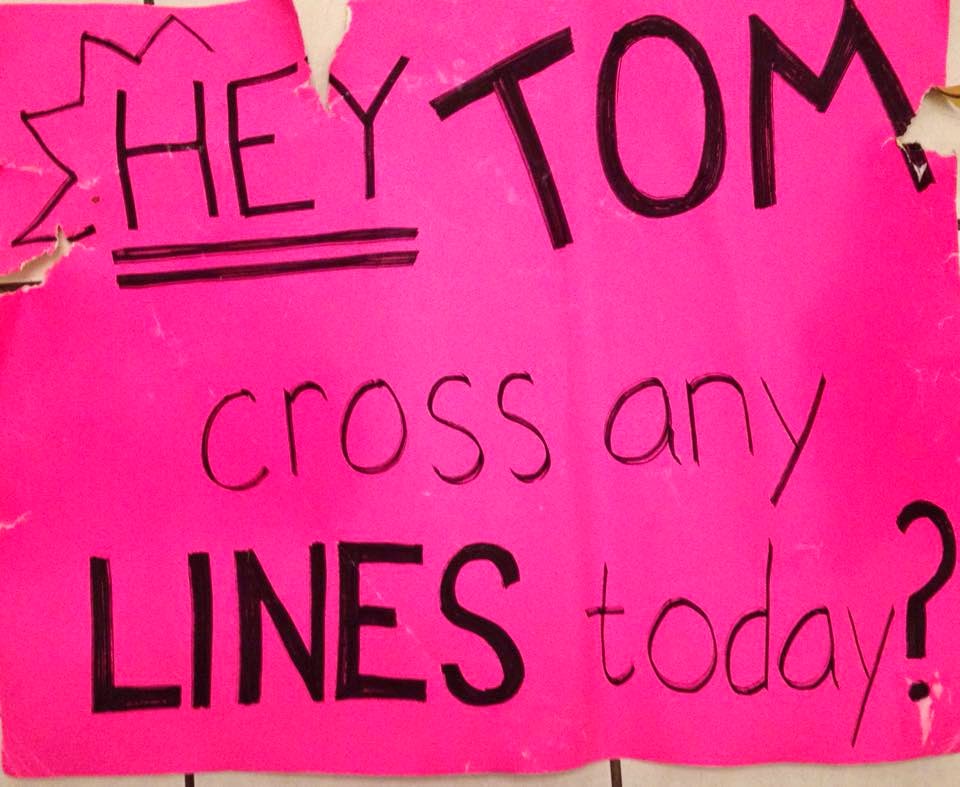 HEY TOM
cross any
LINES today?